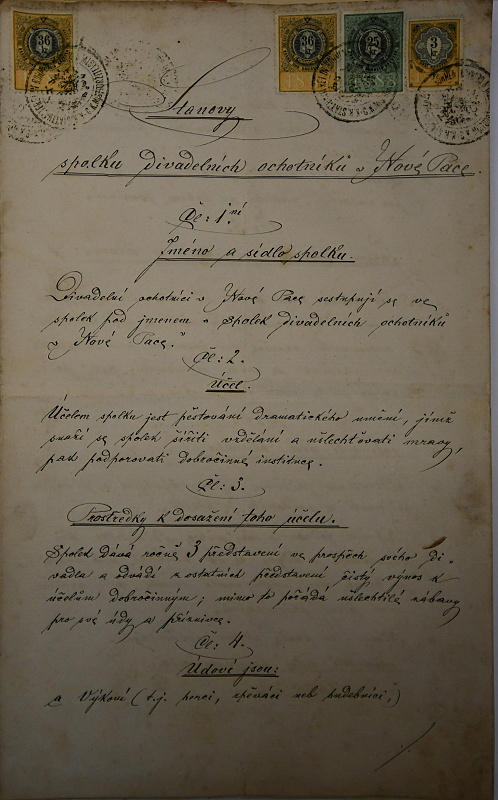 36
36
25
3
Stanovy
spolku divadelních ochotníků v Nové Pace.
Čl: 1.ní
Jméno a sídlo spolku.
Divadelní ochotníci v Nové Pace sestupují se ve
spolek pod jmenem „Spolek divadelních ochotníků
v Nové Pace."
Čl: 2.
Účel.
Účelem spolku jest pěstování dramatického umění, jímž
snaží se spolek šířiti vzdělání a ušlechťovati mravy,
pak podporovati dobročinné instituce.
Čl: 3.
Prostředky k dosažení toho účelu.
Spolek dává ročně 3 představení ve prospěch svého di„
vadla a odvádí z ostatních představení čistý výnos k
účelům dobročinným; mimo to pořádá ušlechtilé zábavy
pro své údy a příznivce.
Čl: 4.
Údové jsou:
a Výkoní (t.j. herci, zpěváci neb hudebníci,)